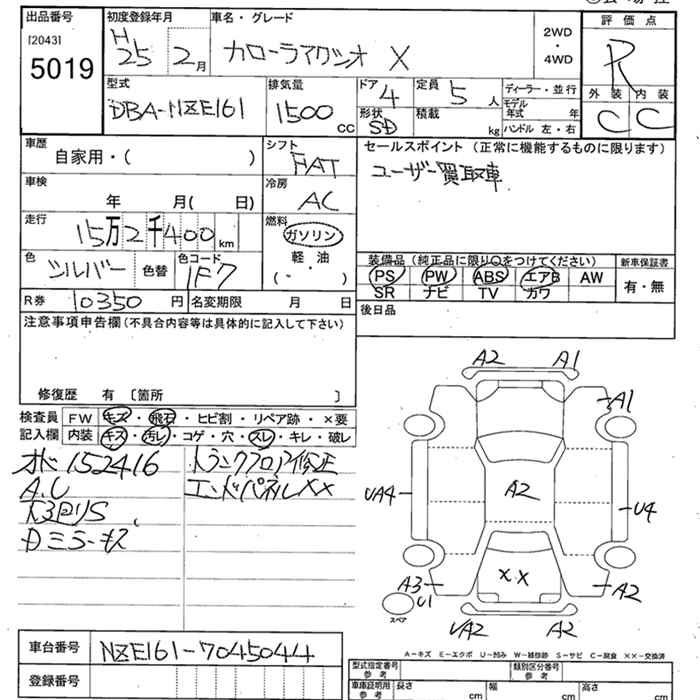 出品番号
[2043]
5019
初度登録年月
H 25 2月
車名・グレード
カローラアクシオ X
2WD
・
4WD
評価点
R
外装 内装
C C
型式
DBA-NZE161
排気量
1500 cc
ドア 4
形状 SD
定員 5 人
積載 kg
ディーラー・並行
モデル年式 年
ハンドル 左・右
車歴
自家用・( )
シフト
FAT
セールスポイント (正常に機能するものに限ります)
ユーザー買取車
車検
年 月( 日)
冷房
AC
走行
15万2千400 km
燃料
ガソリン
軽・油
( ・ )
色
シルバー
色替
色コード
1F7
装備品(純正品に限り○をつけてください)
PS PW ABS エアB AW
SR ナビ TV カワ
新車保証書
有・無
R券 10350 円
名変期限 月 日
後日品
注意事項申告欄(不具合内容等は具体的に記入して下さい)
修復歴 有 〔箇所 〕
検査員記入欄
FW キズ・飛石・ヒビ割・リペア跡・×要
内装 キズ・汚レ・コゲ・穴・スレ・キレ・破レ
オド152416
A.C
Dミラーキズ
トランクフロア修正
エンドパネルXX
A2 A1
A1
UA4
A2
U4
XX
A3
U1
A2
スペア
UA2 A2
A-キズ E-エクボ U-凹み W-補修跡 S-サビ C-腐食 XX-交換済
車台番号
NZE161-7045044
登録番号
型式指定番号 参考
類別区分番号 参考
車庫証明用 参考
長さ cm
幅 cm
高さ cm